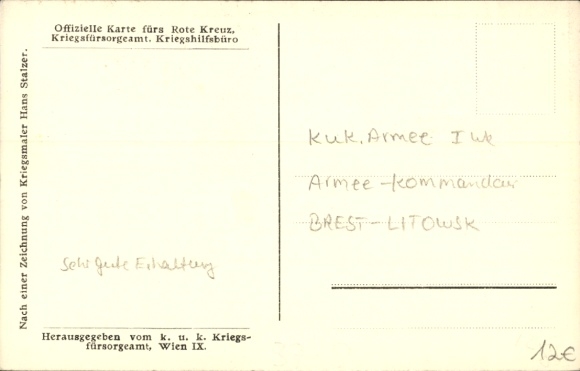 Offizielle Karte fürs Rote Kreuz,
Kriegsfürsorgeamt. Kriegshilfsbüro
Nach einer Zeichnung von Kriegsmaler Hans Stalzer.
KuK. Armee I
Armee-Kommandan
BREST-LITOWSK
Sehr gute Erhaltung
Herausgegeben vom k. u. k. Kriegs-
fürsorgeamt, Wien IX.
12€